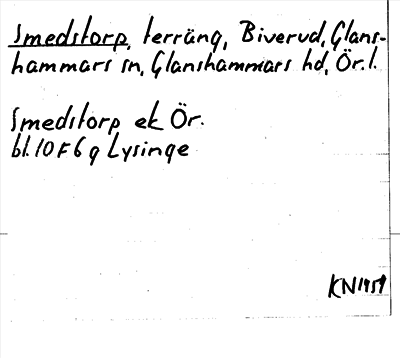 Smedstorp, terräng, Biverud, Glans-
hammars sn, Glanshammars hd, Ör. l.
Smedstorp ek Ör.
bl. 10 F 6 g Lysinge
KN 1959